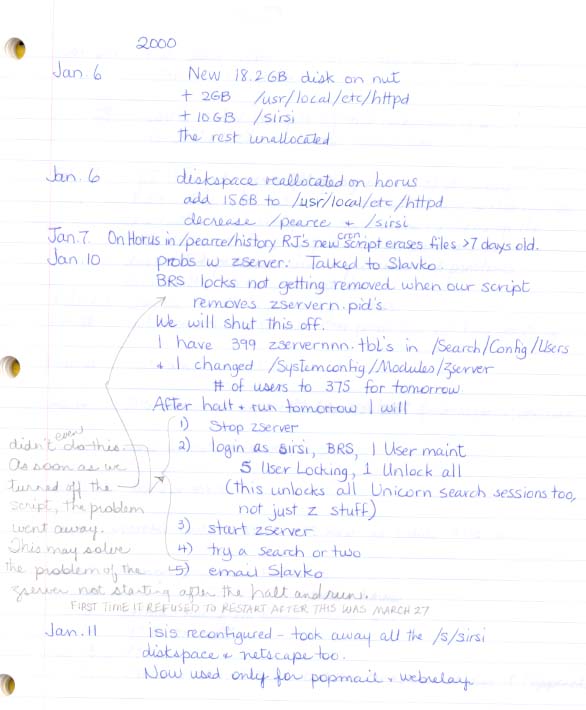 2000
Jan. 6 New 18.2GB disk on nut
+ 2GB /usr/local/etc/httpd
+ 10GB /sirsi
the rest unallocated
Jan. 6 diskspace reallocated on horus
add 15GB to /usr/local/etc/httpd
decrease /pearce + /sirsi
Jan. 7. On Horus in /pearce/history RJ's new cron script erases files >7 days old.
Jan. 10 probs w zserver. Talked to Slavko.
BRS locks not getting removed when our script
removes zservern.pid's.
We will shut this off.
I have 399 zservernnn.tbl's in /Search/Config/Users
+ I changed /Systemconfig/Modules/zserver
# of users to 375 for tomorrow
After halt + run tomorrow I will
1) Stop zserver
2) login as sirsi, BRS, 1 User maint
5 User Locking, 1 Unlock all
(this unlocks all Unicorn search sessions too,
not just z stuff)
3) start zserver
4) try a search or two
5) email Slavko
didn't even do this.
As soon as we
turned off the
script, the problem
went away.
This may solve
the problem of the
zserver not starting after the halt and run.
FIRST TIME IT REFUSED TO RESTART AFTER THIS WAS MARCH 27
Jan. 11 isis reconfigured - took away all the /s/sirsi
diskspace + netscape too.
Now used only for popmail + webrelay